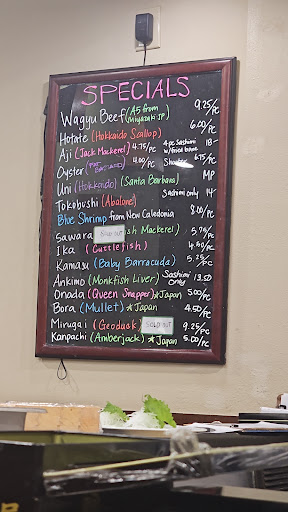 SPECIALS
Wagyu Beef (A5 from Miyazaki JP) 9.25/PC
Hotate (Hokkaido Scallop) 6.00/PC
Aji (Jack Mackerel) 4.75/PC 4pc Sashimi w/fried bone 18-
Oyster 4.00/PC Shooter 6.75/PC
Uni (Hokkaido) (Santa Barbara) MP
Tokobushi (Abalone) Sashimi only 14-
Blue Shrimp from New Caledonia 8.00/PC
Sawara ish Mackerel) 5.75/PC
Ika (Cuttlefish) 4.50/PC
Kamasu (Baby Barracuda) 5.25/PC
Ankimo (Monkfish Liver) Sashimi Only 13.50
Onada (Queen Snapper) ★Japan 5.00/PC
Bora (Mullet) ★Japan 4.50/PC
Mirugai (Geoduck) SOLD OUT 9.25/PC
Kanpachi (Amberjack) ★Japan 5.00/PC